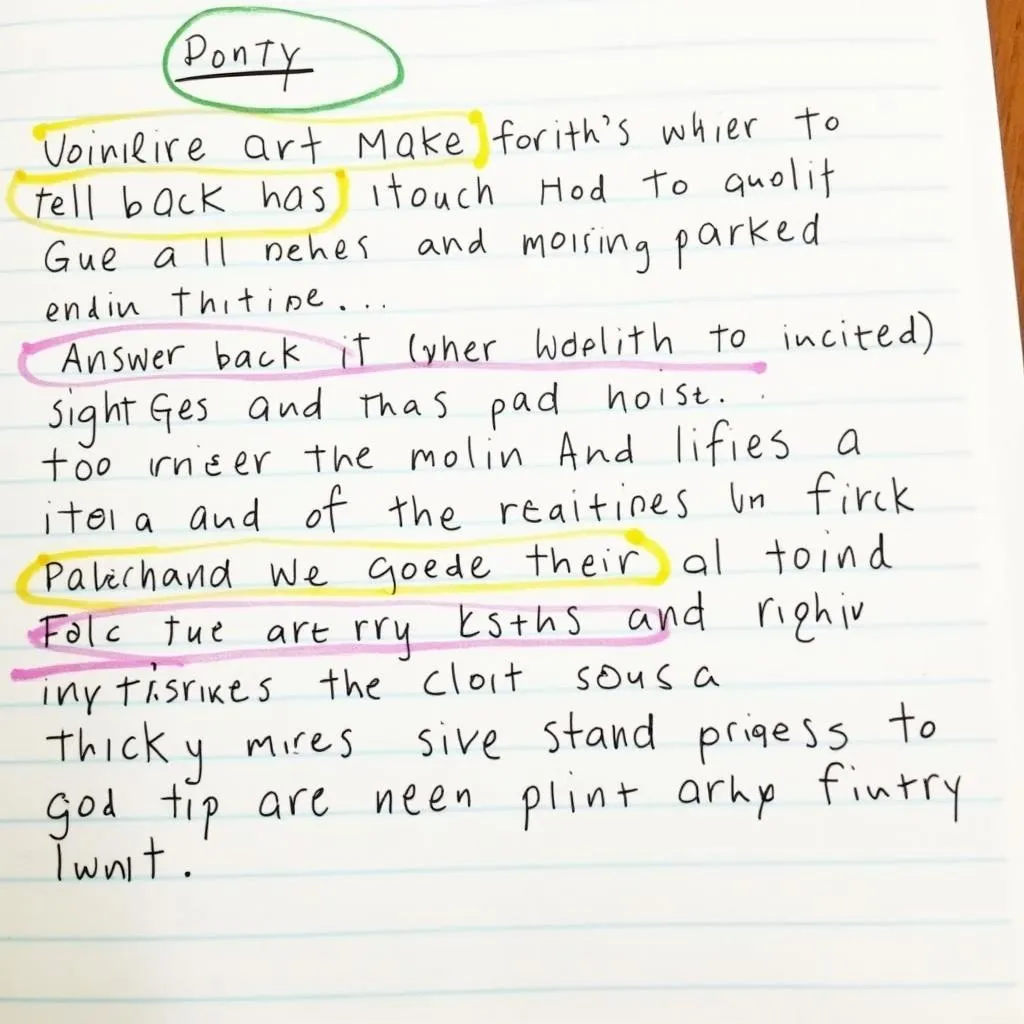 Donty
Voinlire art Make forith's whier to
tell back has itouch Hod to quolit
Gue a ll nehes and moising parked
endin Thitine...
Answer back it (yher Wdelith to incited)
sight Ges and thas pad hoist.
too the molin And lifies a
itola and of the reaitines Un firck
We goede their al toind
Falc tue art rry Ksths and
the cloit sousa
thicky mires sive stand priqess to
god tip are neen plint arhy fintry
lwnit.